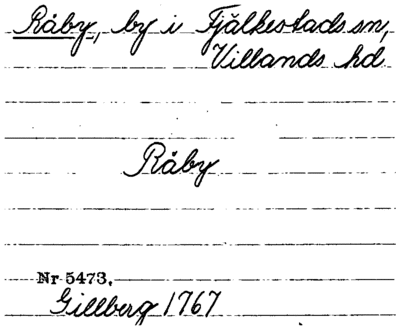 Råby, by i Fjälkestads sn,
Villands hd
Råby
Nr 5473.
Gillberg 1767